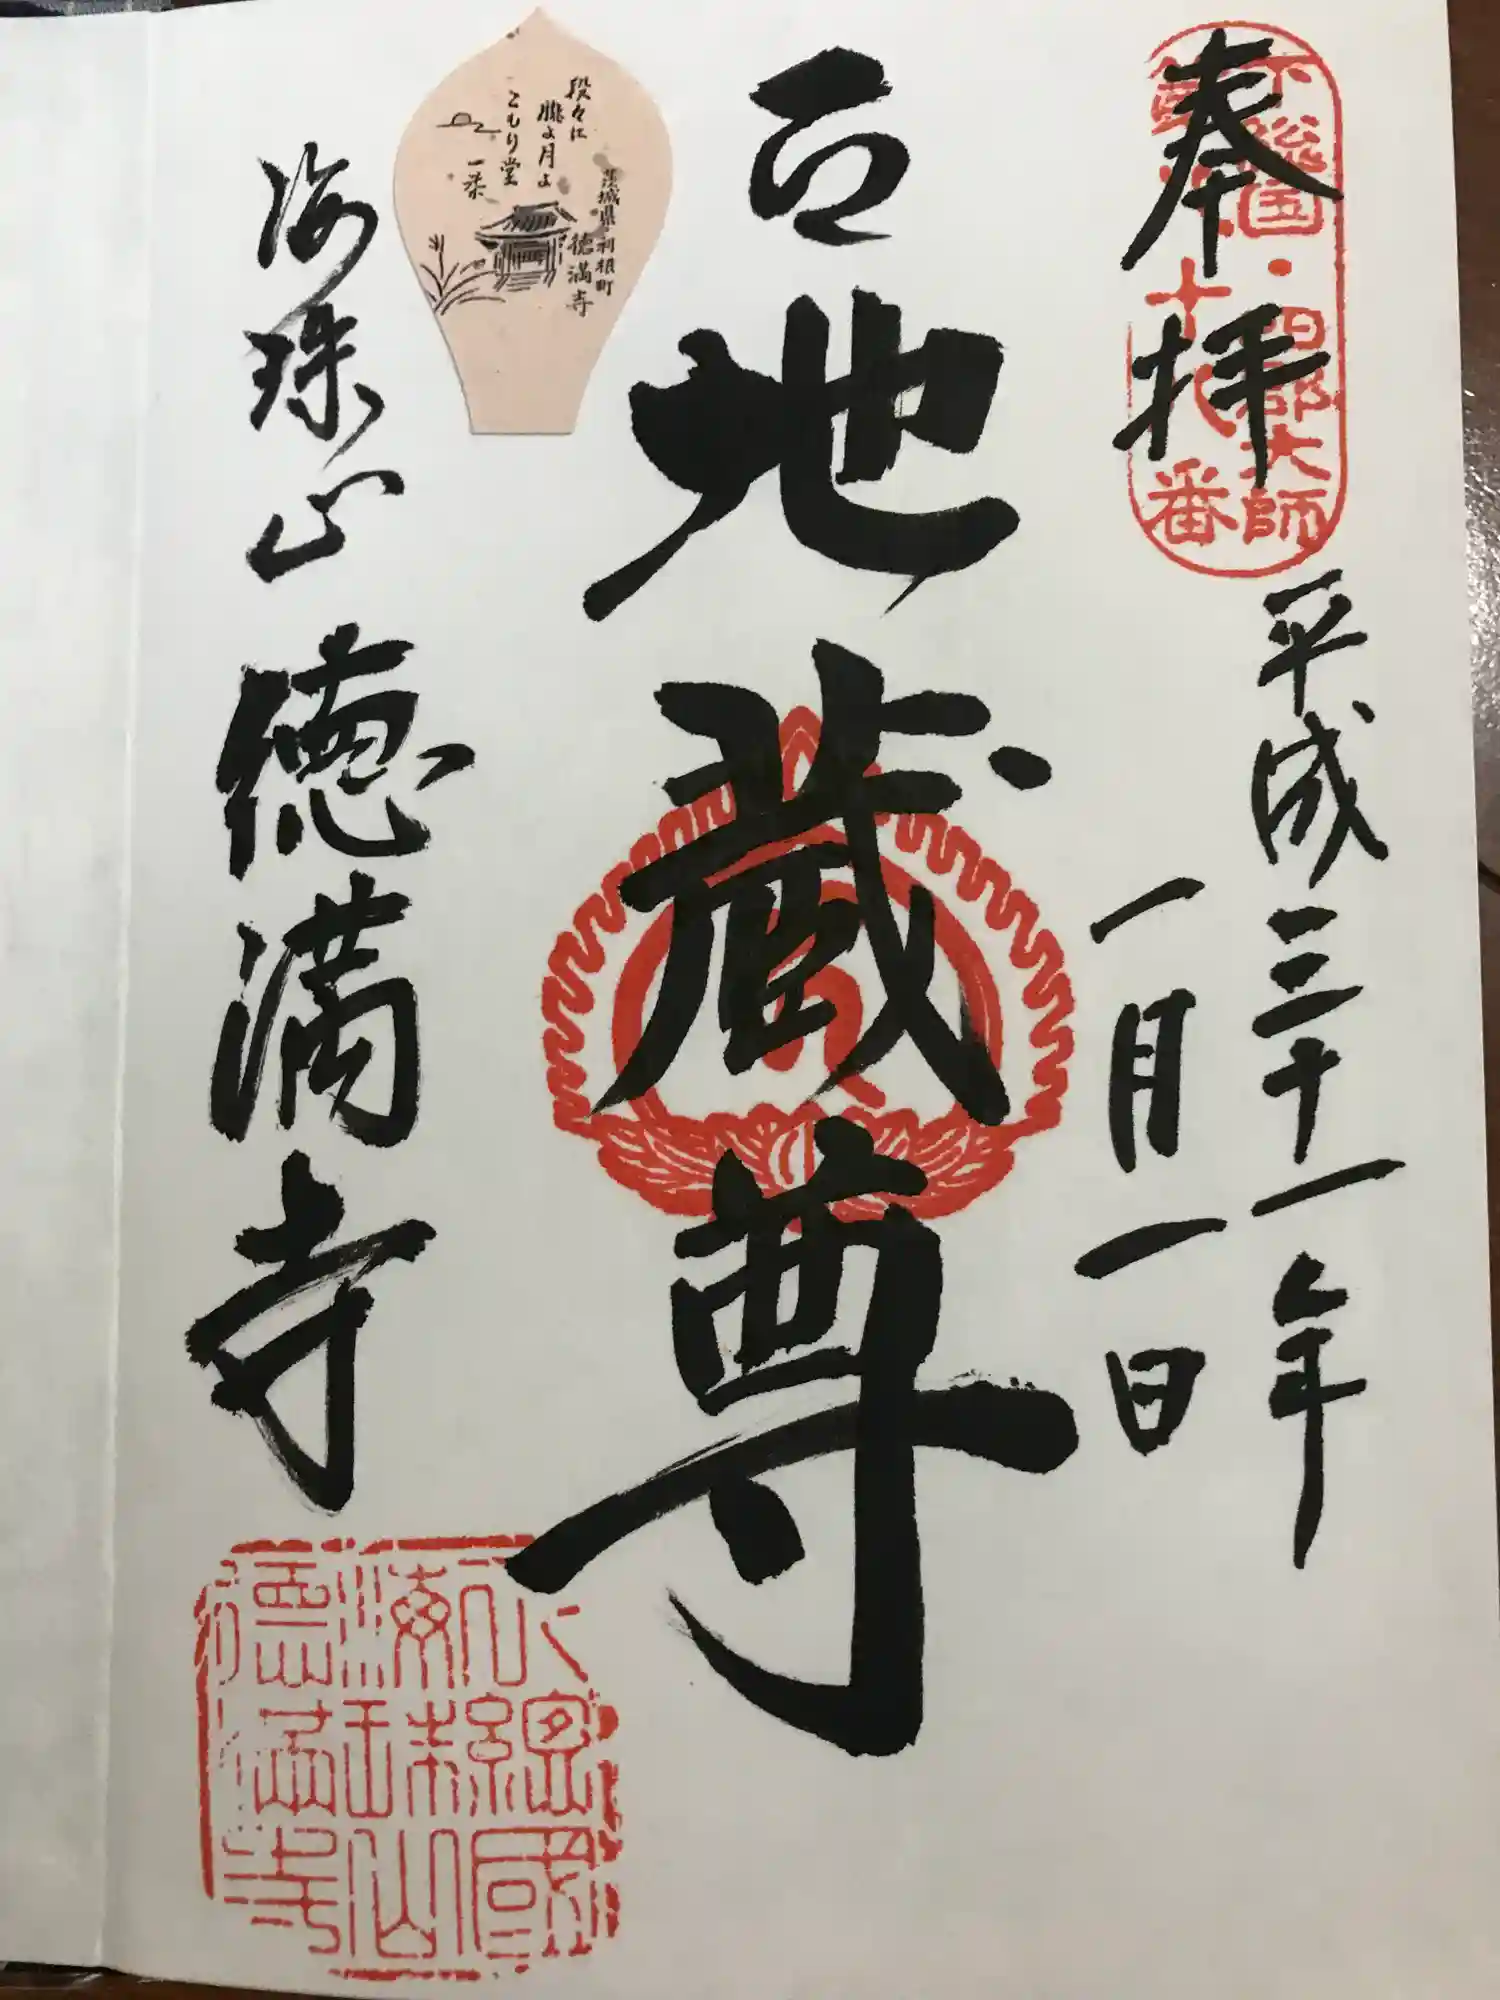 奉拝
平成三十一年
一月一日
地蔵尊
海珠山 徳満寺
下総国・四郡大師
十八番
段々に
朧よ月よ
こもり堂
一茶
茨城県利根町
徳満寺
海珠山
徳満寺